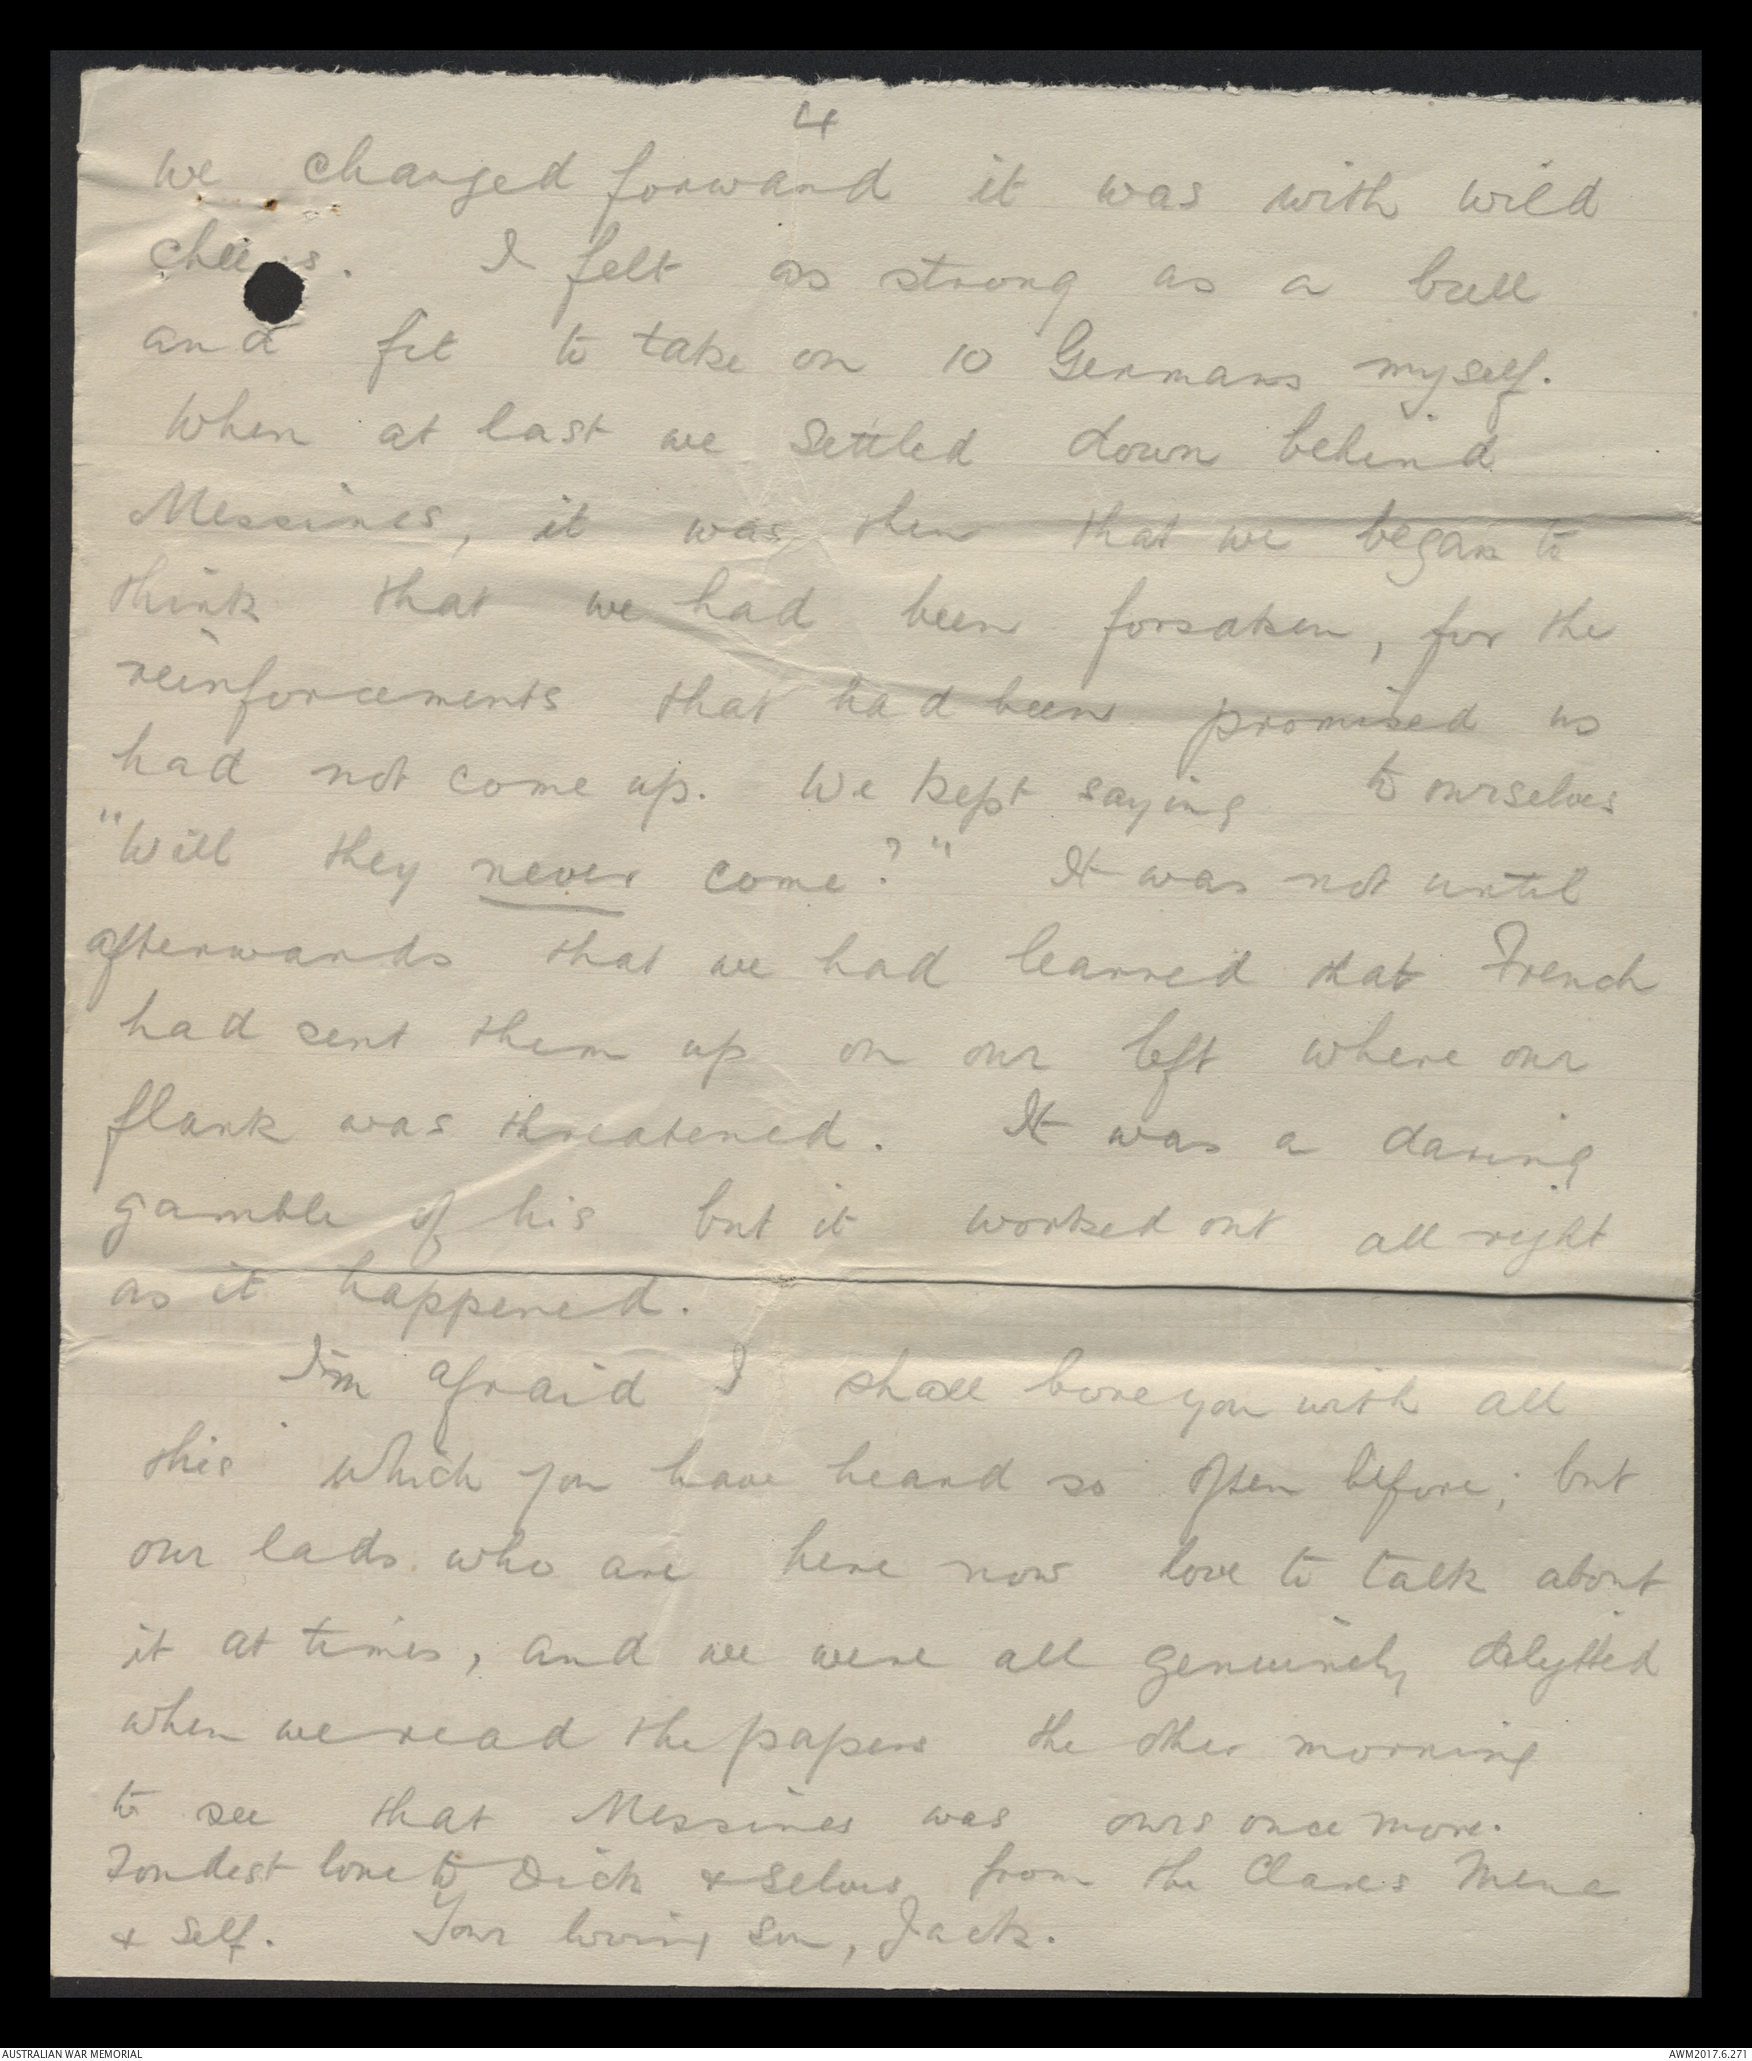 4
we charged forward it was with wild
cheers. I felt as strong as a bull
and fit to take on 10 Germans myself.
When at last we settled down behind
Messines, it was then that we began to
think that we had been forsaken, for the
reinforcements that had been promised us
had not come up. We kept saying to ourselves
"Will they never come?" It was not until
afterwards that we had learned that French
had sent them up on our left where our
flank was threatened. It was a daring
gamble of his but it worked out all right
as it happened.
I'm afraid I shall bore you with all
this which you have heard so often before; but
our lads who are here now love to talk about
it at times, and we were all genuinely delighted
when we read the papers the other morning
to see that Messines was ours once more.
Fondest love to Dick & selves from the Clares Mena
& self. Your loving son, Jack.
AUSTRALIAN WAR MEMORIAL
AWM2017.6.271